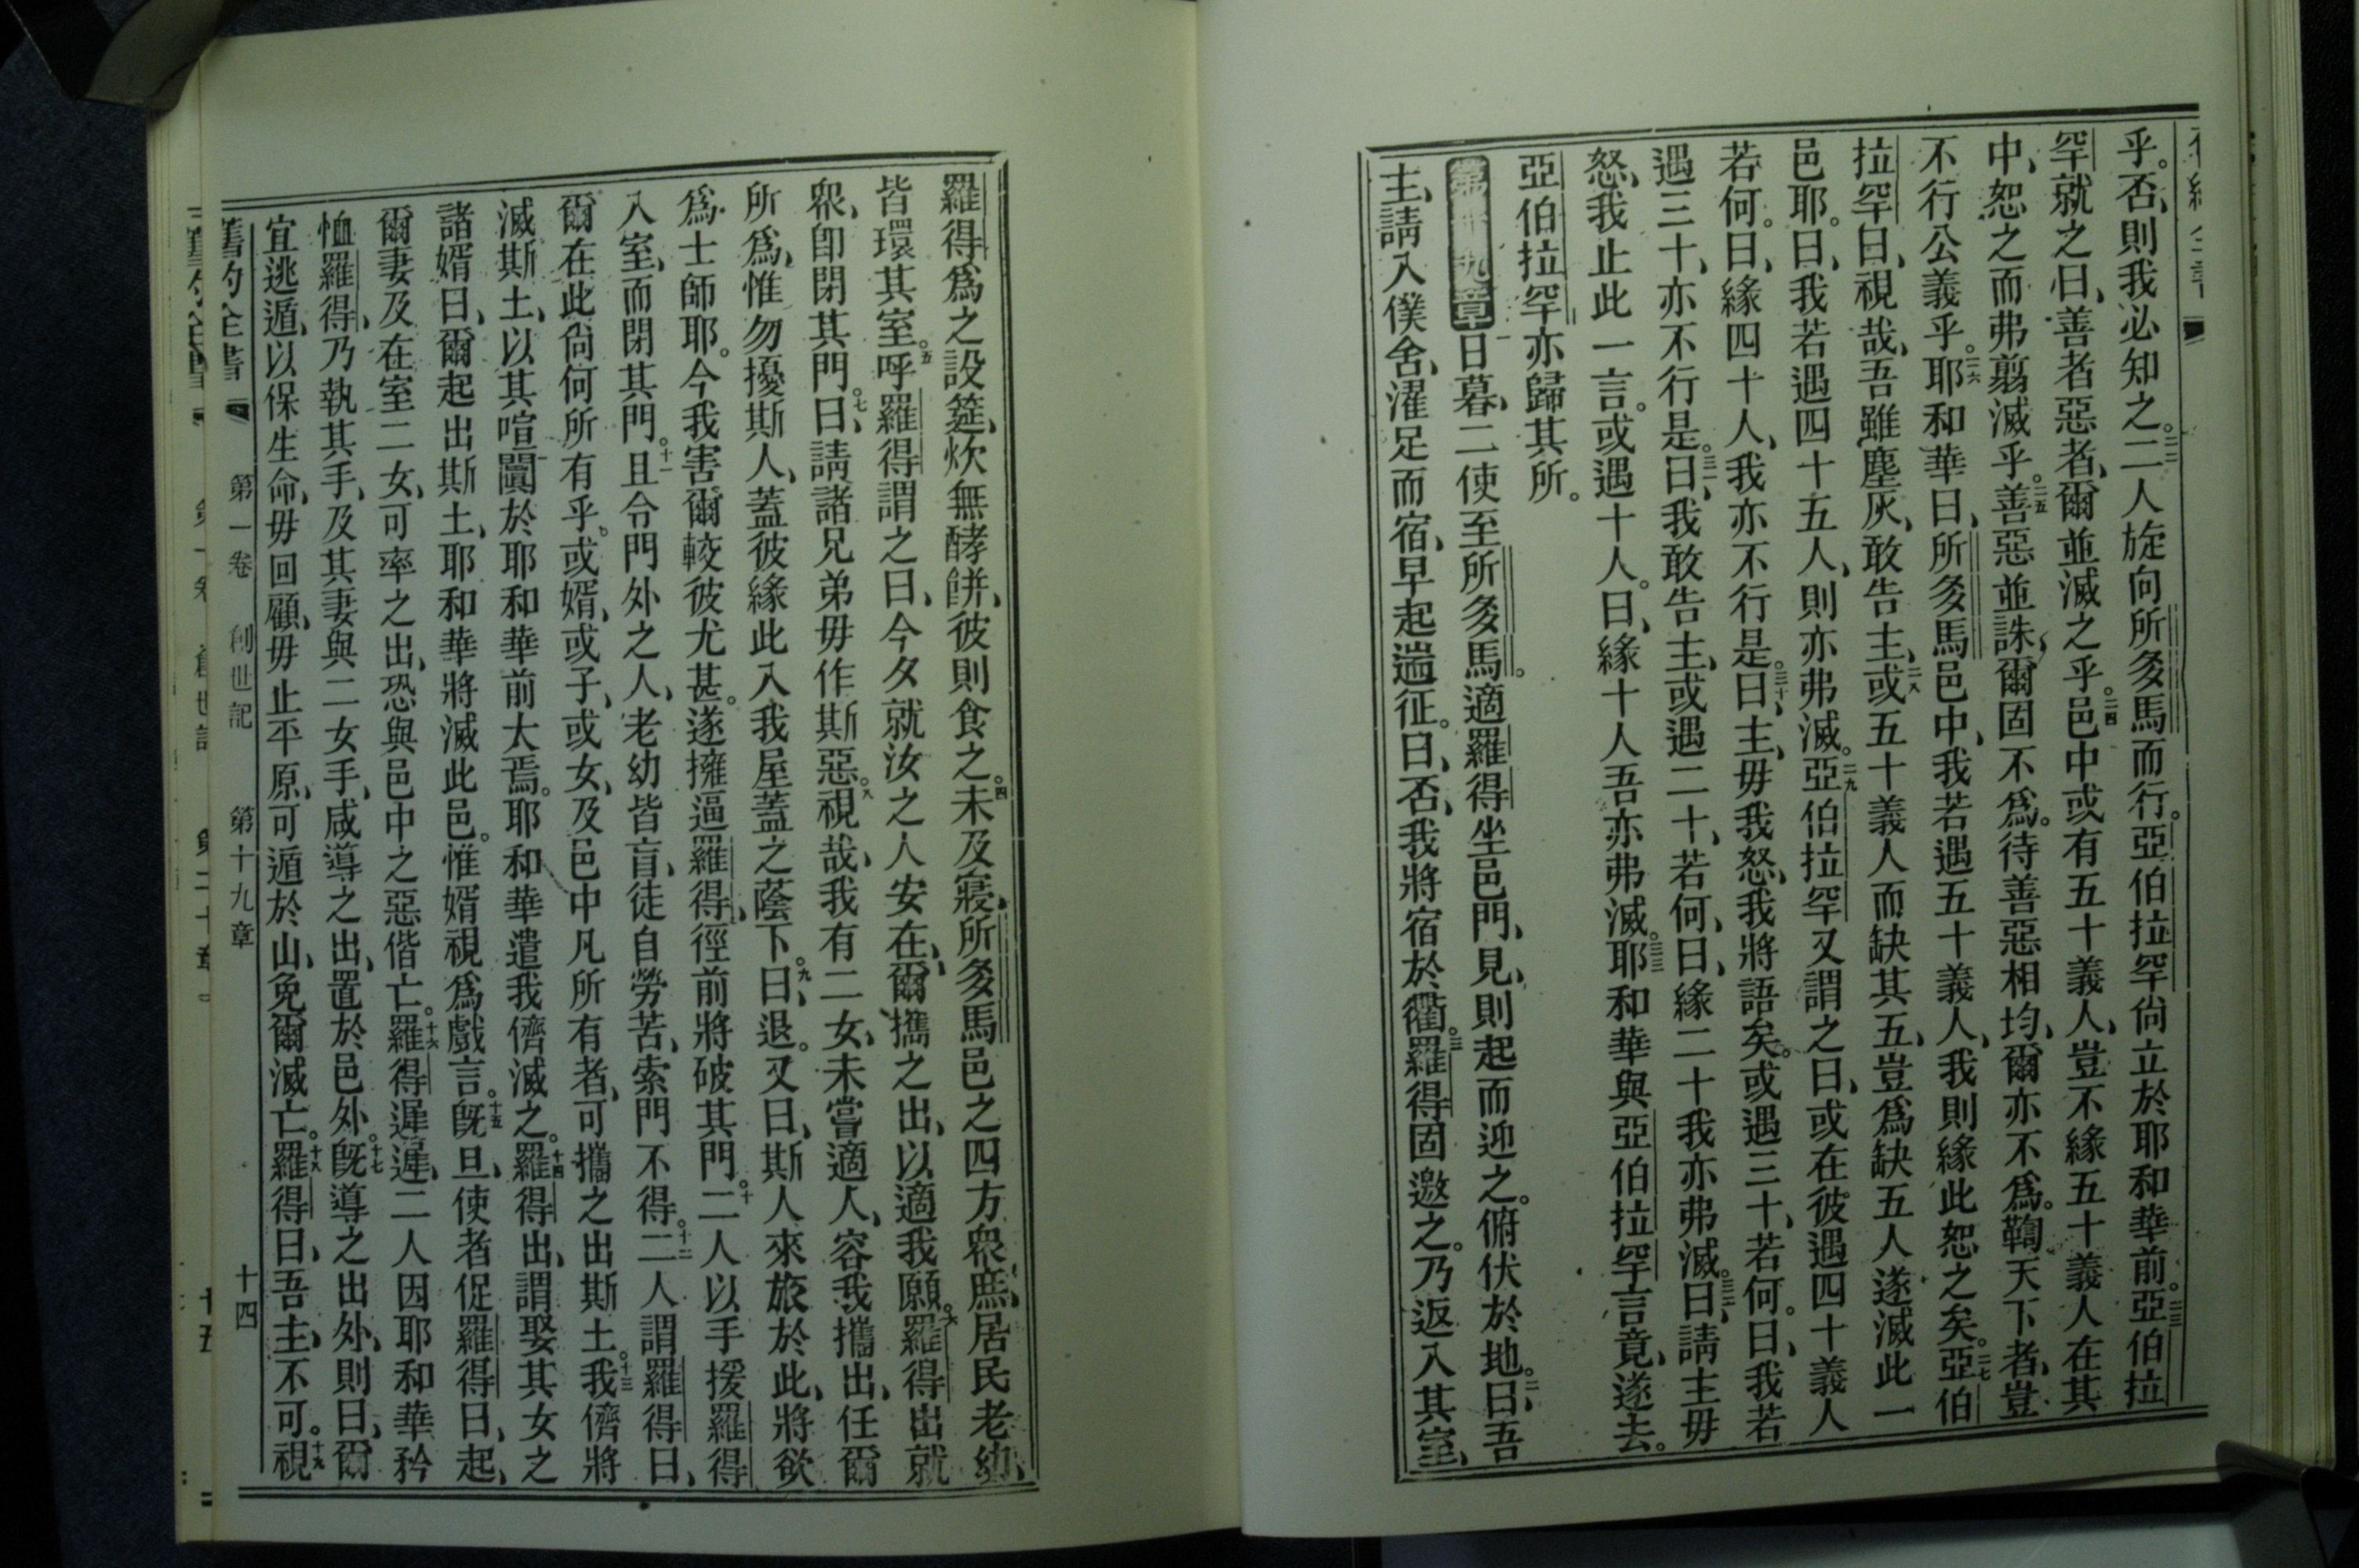 乎。否、則我必知之。二二二人旋向所多馬而行。亞伯拉罕尙立於耶和華前。二三亞伯拉
罕就之曰、善者惡者、爾並滅之乎。二四邑中或有五十義人、豈不緣五十義人在其
中、恕之而弗翦滅乎。二五善惡並誅、爾固不爲。待善惡相均、爾亦不爲。鞫天下者、豈
不行公義乎。二六耶和華曰、所多馬邑中、我若遇五十義人、我則緣此恕之矣。二七亞伯
拉罕曰、視哉、吾雖塵灰、敢告主、二八或五十義人而缺其五、豈爲缺五人遂滅此一
邑耶。曰、我若遇四十五人、則亦弗滅。二九亞伯拉罕又謂之曰、或在彼遇四十義人
若何。曰、緣四十人、我亦不行是。三十曰、主、毋我怒、我將語矣。或遇三十、若何。曰、我若
遇三十、亦不行是。三一曰、我敢告主、或遇二十、若何、曰、緣二十我亦弗滅。三二曰、請主毋
怒、我止此一言。或遇十人。曰、緣十人吾亦弗滅。三三耶和華與亞伯拉罕言竟、遂去。
亞伯拉罕亦歸其所。
第十九章 一日暮、二使至所多馬。適羅得坐邑門、見、則起而迎之。俯伏於地。二曰、吾
主、請入僕舍、濯足而宿、早起遄征。曰、否、我將宿於衢。三羅得固邀之。乃返入其室、
羅得爲之設筵、炊無酵餠、彼則食之。四未及寢、所多馬邑之四方衆庶、居民老幼、
皆環其室。五呼羅得謂之曰、今夕就汝之人安在、爾攜之出、以適我願。六羅得出就
衆、卽閉其門。七曰、請諸兄弟毋作斯惡。八視哉、我有二女、未嘗適人、容我攜出、任爾
所爲、惟勿擾斯人、蓋彼緣此入我屋蓋之蔭下。九曰、退。又曰、斯人來旅於此、將欲
爲士師耶。今我害爾較彼尤甚。遂擁逼羅得、徑前將破其門。十二人以手援羅得
入室、而閉其門。十一且令門外之人、老幼皆盲、徒自勞苦、索門不得。十二二人謂羅得曰、
爾在此尙何所有乎。或婿、或子、或女、及邑中凡所有者、可攜之出斯土。十三我儕將
滅斯土、以其喧闐於耶和華前大焉。耶和華遣我儕滅之。十四羅得出、謂娶其女之
諸婿曰、爾起出斯土、耶和華將滅此邑。惟婿視爲戲言。十五旣旦、使者促羅得曰、起、
爾妻及在室二女、可率之出、恐與邑中之惡偕亡。十六羅得遲遲、二人因耶和華矜
恤羅得、乃執其手、及其妻與二女手、咸導之出、置於邑外。十七旣導之出外、則曰、爾
宜逃遁、以保生命、毋回顧、毋止平原、可遁於山、免爾滅亡。十八羅得曰、吾主、不可。十九視
舊約全書 第一卷 創世記 第十九章 十四